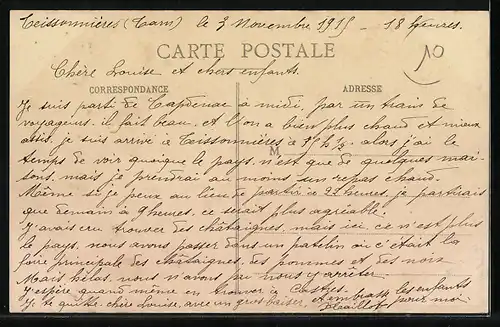 Teissonnières (Tarn) le 3 Novembre 1915 - 18 heures.
CARTE POSTALE
Chère Louise et chers enfants.
CORRESPONDANCE
ADRESSE
Je suis parti de Capdenac à midi, par un train de
voyageurs. il fait beau, et l'on a bien plus chaud et mieux
assis, je suis arrivé à Teissonnières à 15 h ½ alors j'ai le
M
temps de voir quoique le pays n'est que de quelques mai-
sons, mais je prendrai au moins un repas chaud.
Même si je peux au lieu de partir à 23 heures, je partirais
que demain à 9 heures, ce serait plus agréable.
J'avais cru trouver des châtaignes, mais ici, ce n'est plus
le pays, nous avons passer dans un patelin où c'était la
foire principale des châtaignes, des pommes et des noix
Mais hélas, nous n'avons pu nous y arrêter.
J'espère quand même en trouver à Castres.
Je te quitte chère Louise, avec un gros baiser, et embrasse les enfants
pour moi